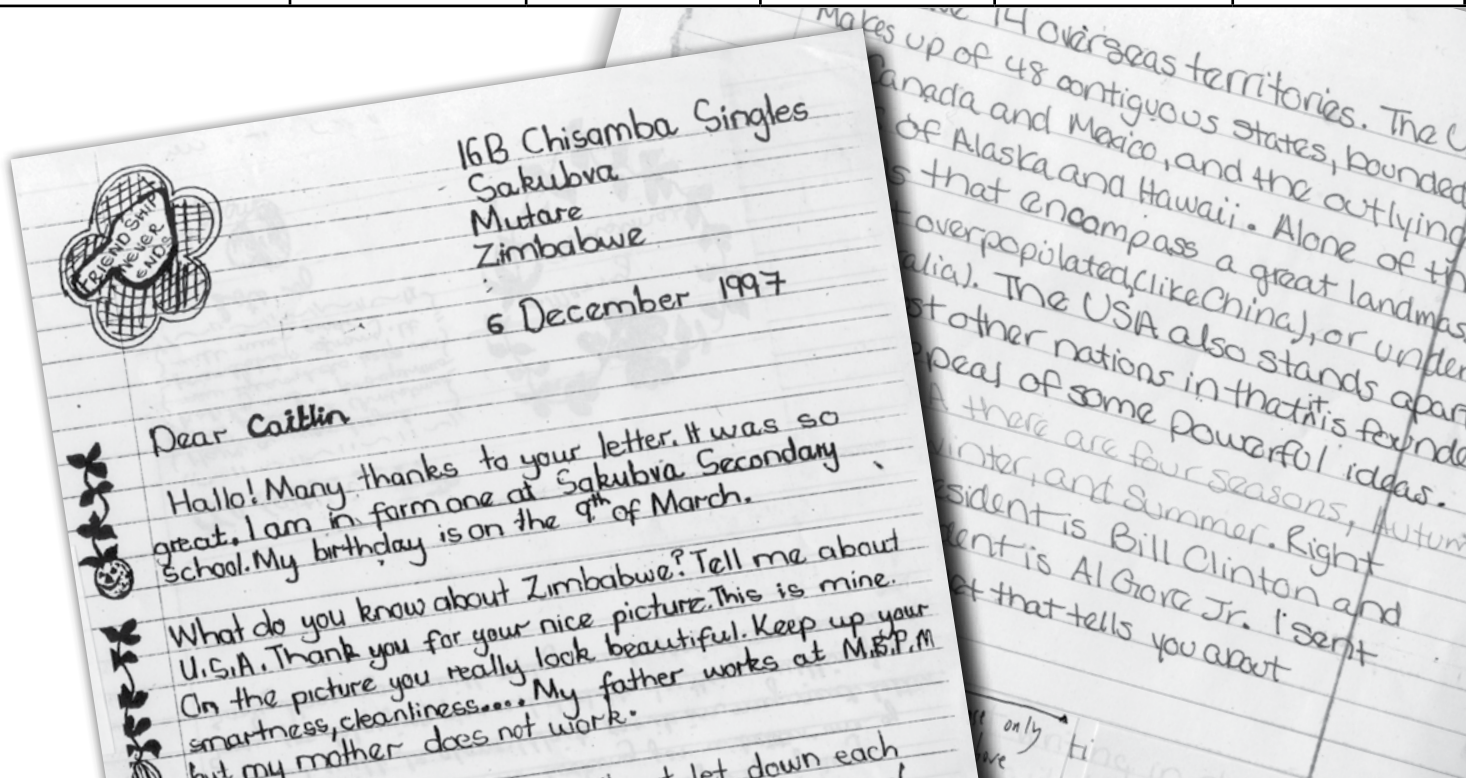 FRIENDSHIP
NEVER
ENDS
16B Chisamba Singles
Sakubva
Mutare
Zimbabwe
6 December 1997
Dear Caitlin
Hallo! Many thanks to your letter. It was so
great. I am in form one at Sakubva Secondary
school. My birthday is on the 9th of March.
What do you know about Zimbabwe? Tell me about
U.S.A. Thank you for your nice picture. This is mine.
On the picture you really look beautiful. Keep up your
smartness, cleanliness.... My father works at M.B.P.M
but my mother does not work.
let down each
14 overseas territories. The
Makes up of 48 contiguous states, bounded
Canada and Mexico, and the outlying
of Alaska and Hawaii. Alone of
that encompass a great landmas
overpopulated (like China), or under
alia). The USA also stands apart
other nations in that it is founde
peal of some powerful ideas.
there are four seasons, Autum
inter, and Summer. Right
esident is Bill Clinton and
ent is Al Gore Jr. I sent
at that tells you about
only